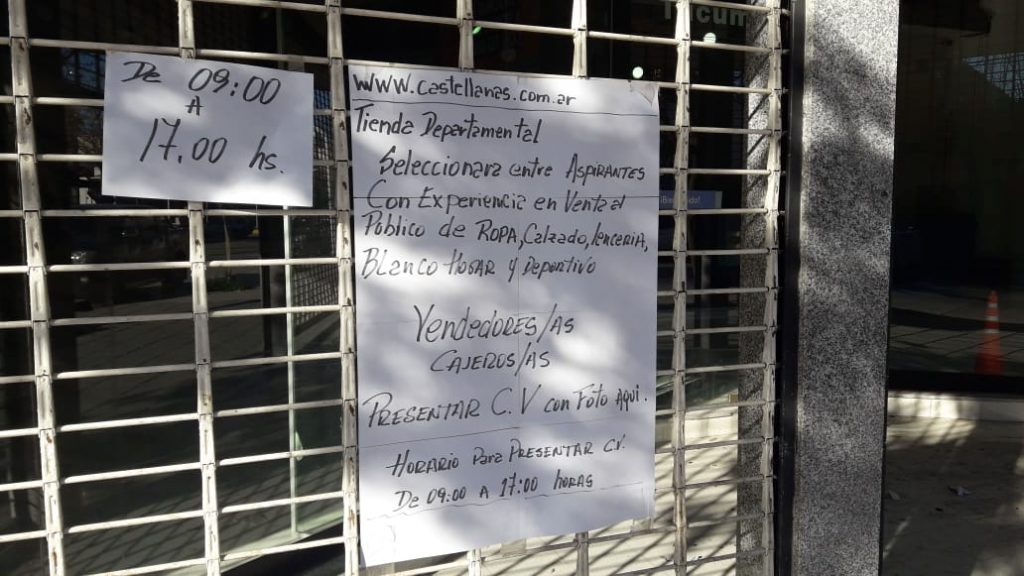 DE 09:00
A
17.00 hs.
www.castellanas.com.ar
Tienda Departamental
Seleccionara entre ASPIRANTES
Con Experiencia en Venta al
Público de ROPA, Calzado, lencería,
BLANCO HOGAR y Deportivo
VENDEDORES/AS
CAJEROS/AS
PRESENTAR C.V con Foto Aquí.
HORARIO Para PRESENTAR CV.
De 09:00 A 17:00 horas
Tucum